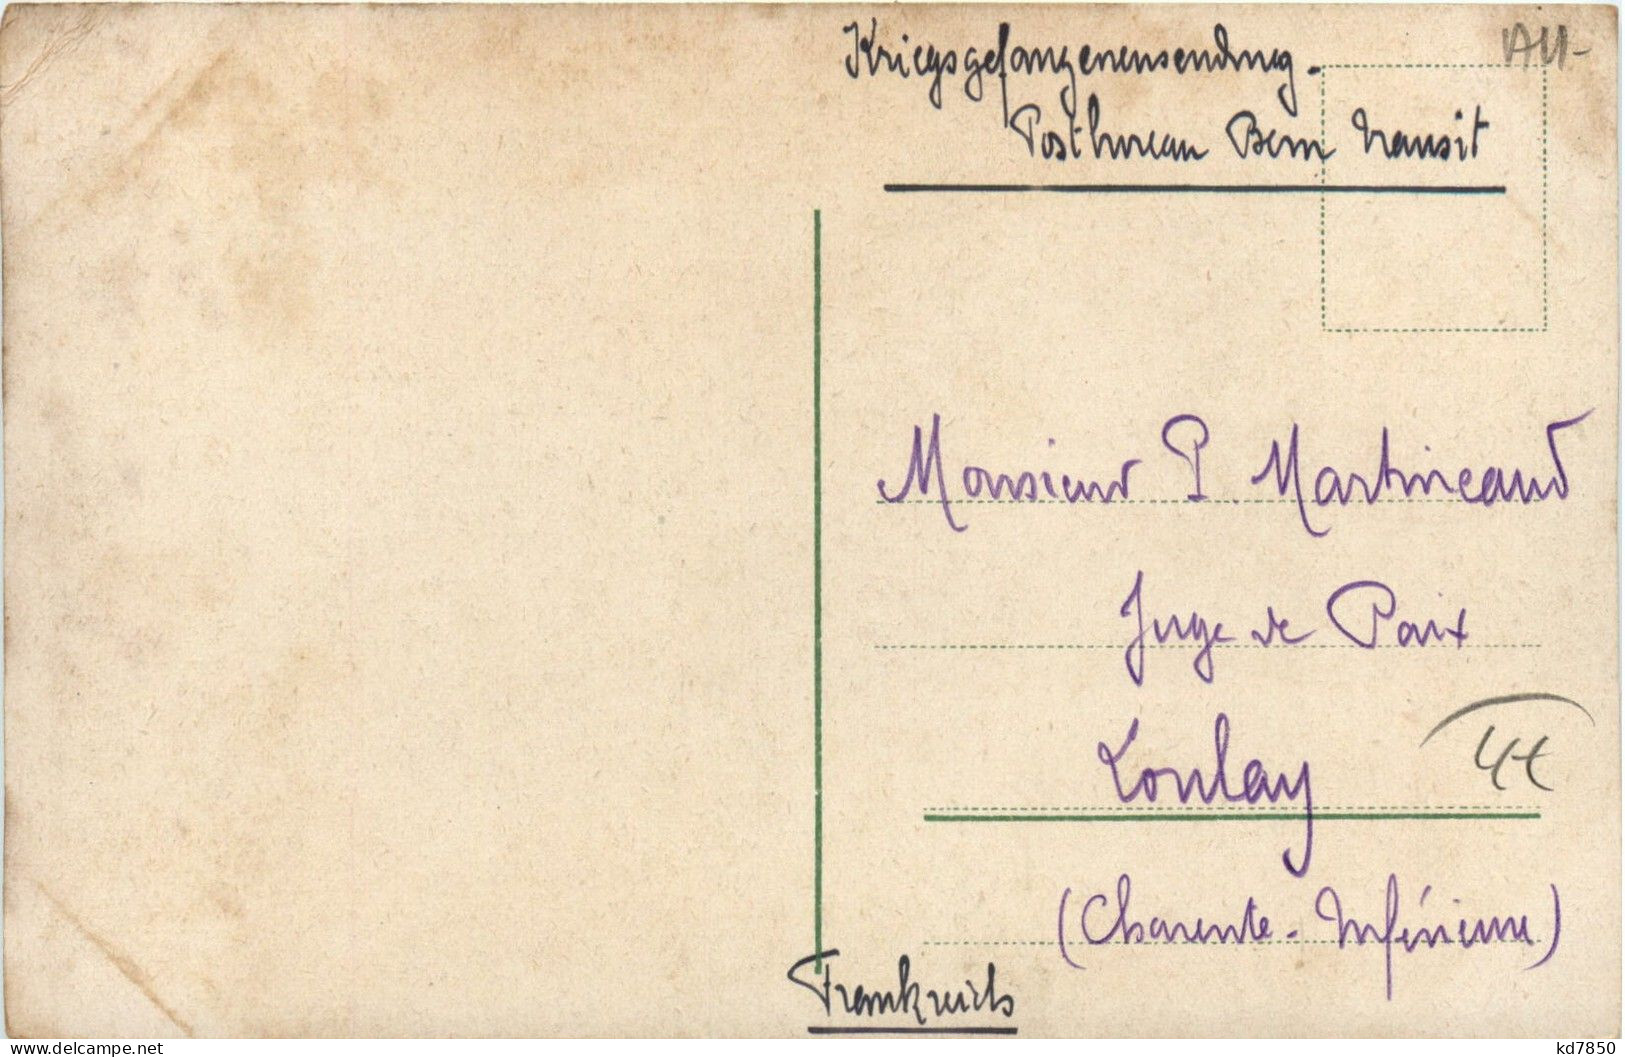 Kriegsgefangenensendung.
AU-
Postbureau Bern Transit
Monsieur P. Martineaud
Juge de Paix
Loulay
44
(Charente-Inférieure)
Frankreich
www.delcampe.net
kd7850